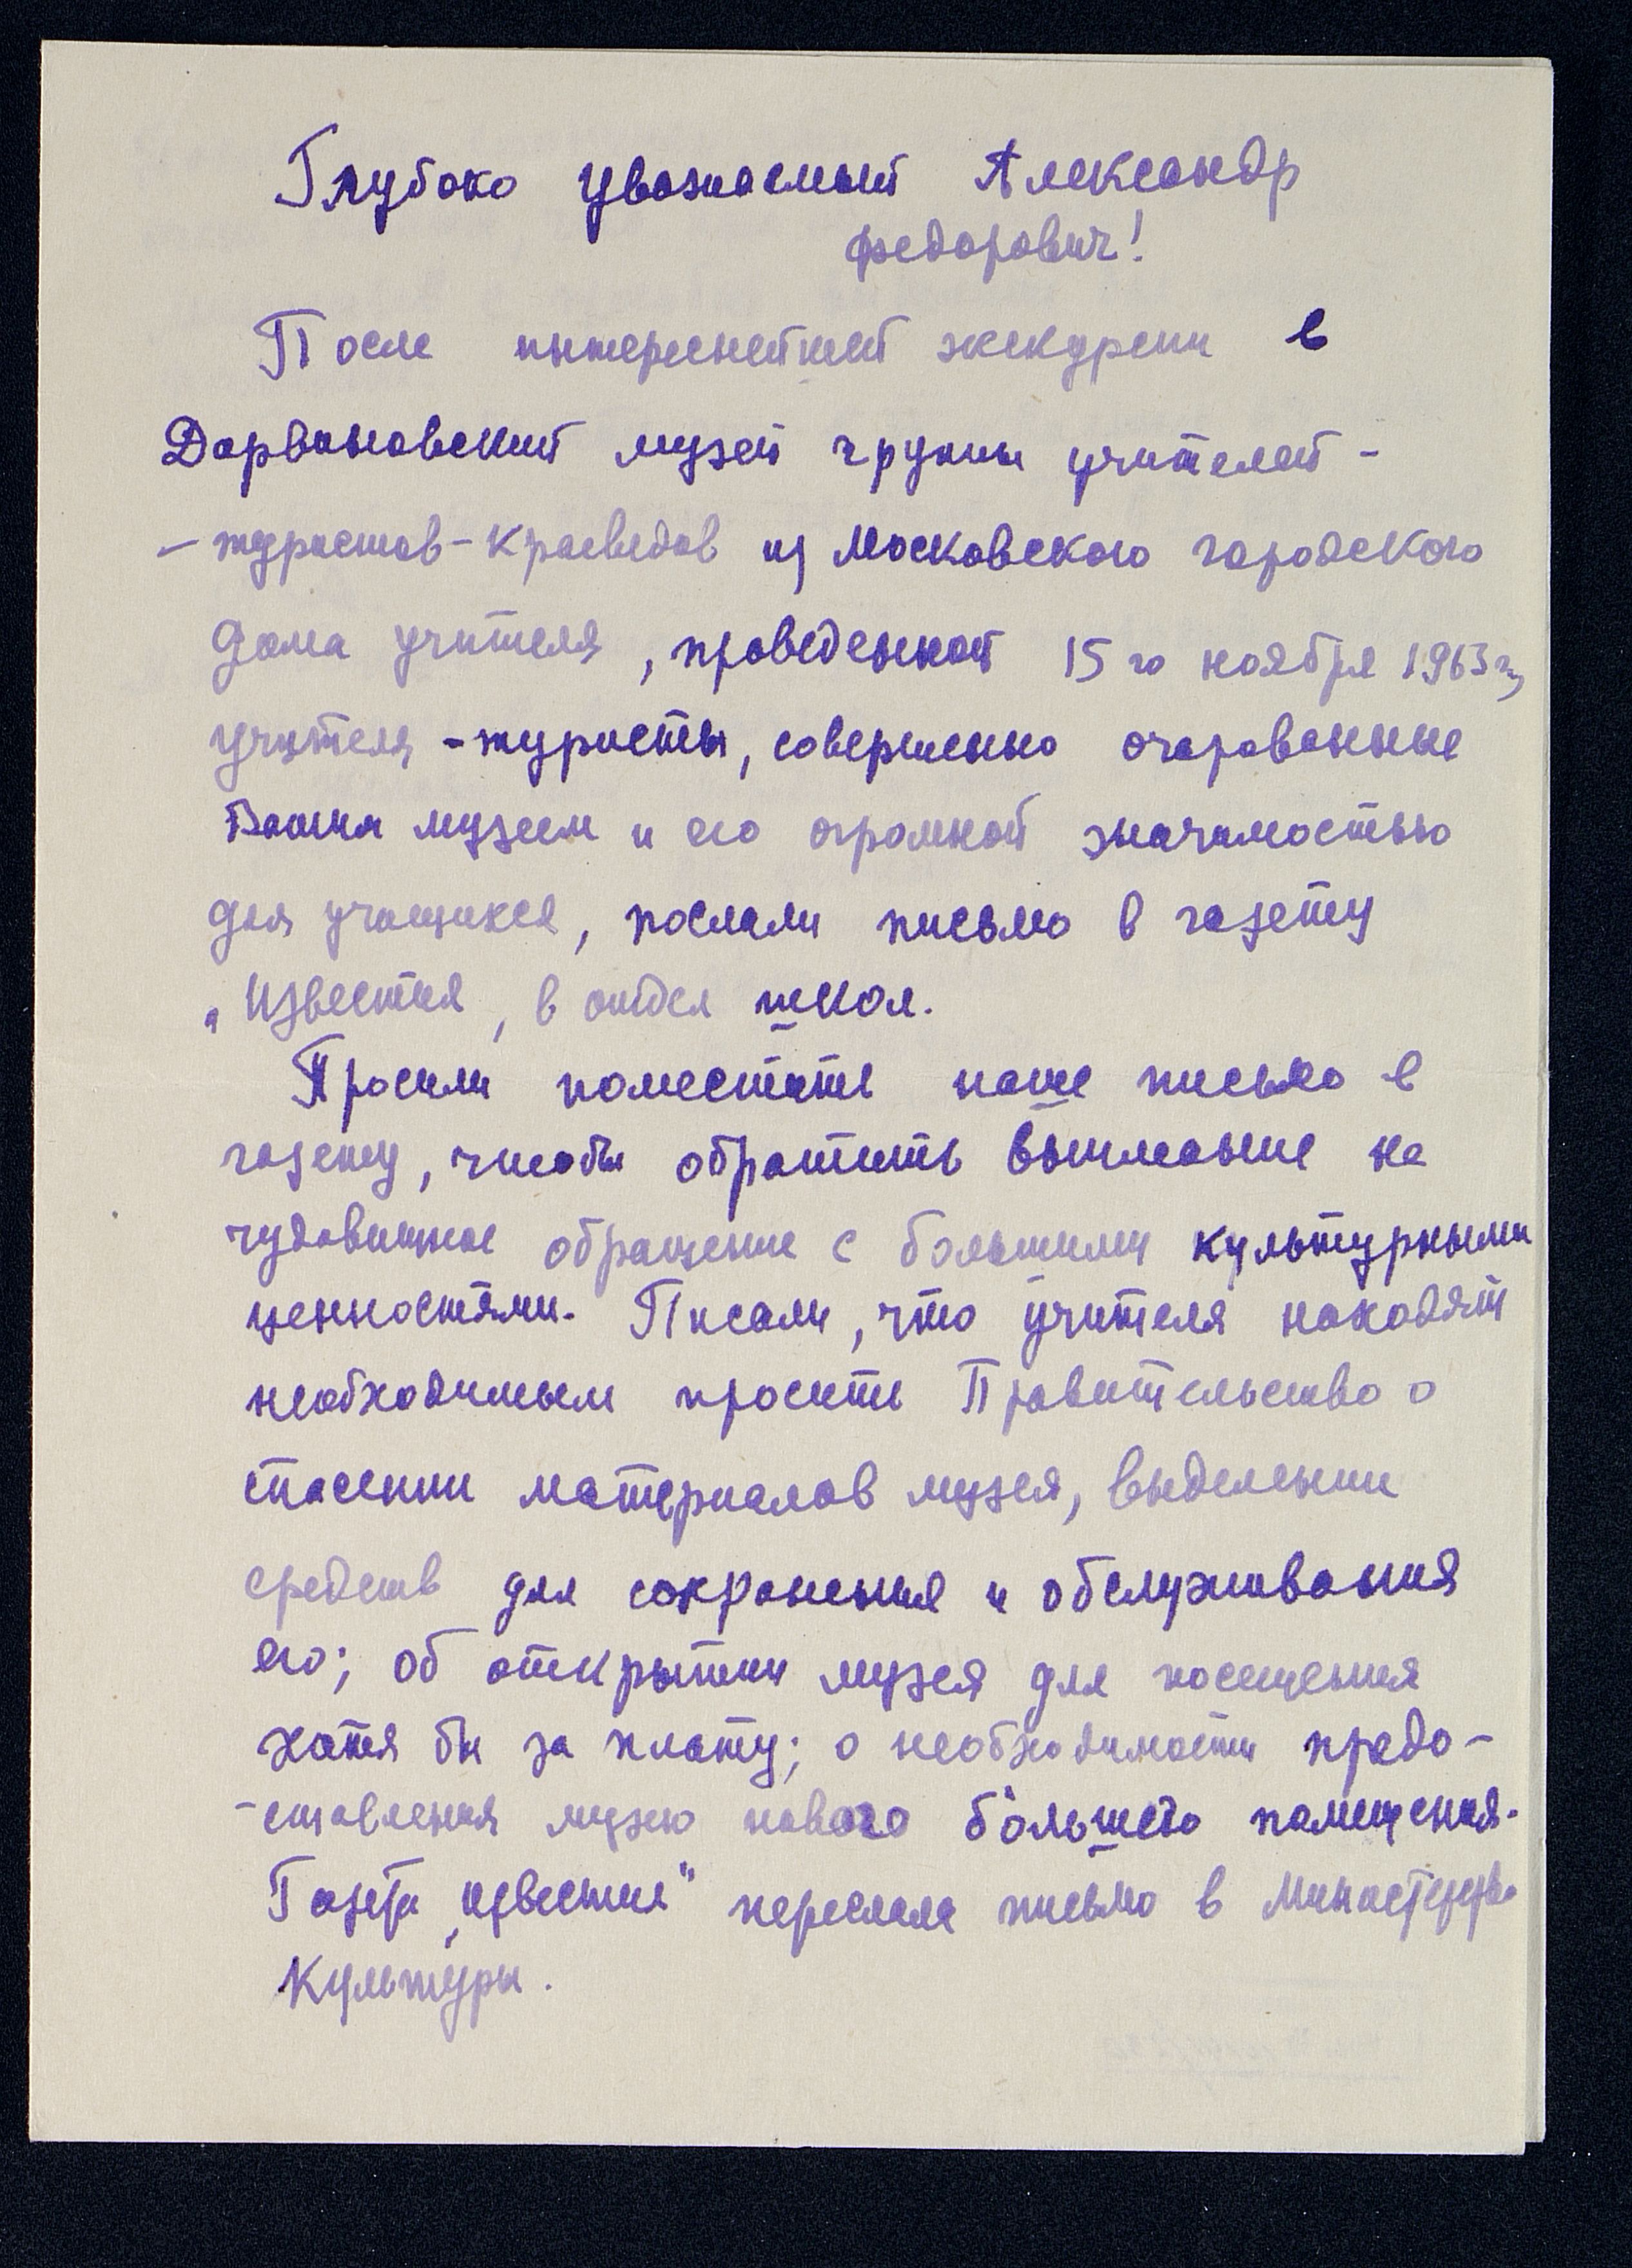 Глубоко уважаемый Александр
Федорович!
После интереснейшей экскурсии в
Дарвиновский музей группы учителей -
- туристов - краеведов из Московского городского
дома учителя, проведенной 15го ноября 1963 г,
учителя - туристы, совершенно очарованные
Вашим музеем и его огромной значимостью
для учащихся, послали письмо в газету
„Известия, в отдел школ.
Просили поместить наше письмо в
газету, чтобы обратить внимание на
чудовищное обращение с большими культурными
ценностями. Писали, что учителя находят
необходимым просить Правительство о
спасении материалов музея, выделении
средств для сохранения и обслуживания
его; об открытии музея для посещения
хотя бы за плату; о необходимости предо-
-ставления музею нового бо́льшего помещения.
Газета „Известия" переслала письмо в Министерство
Культуры.